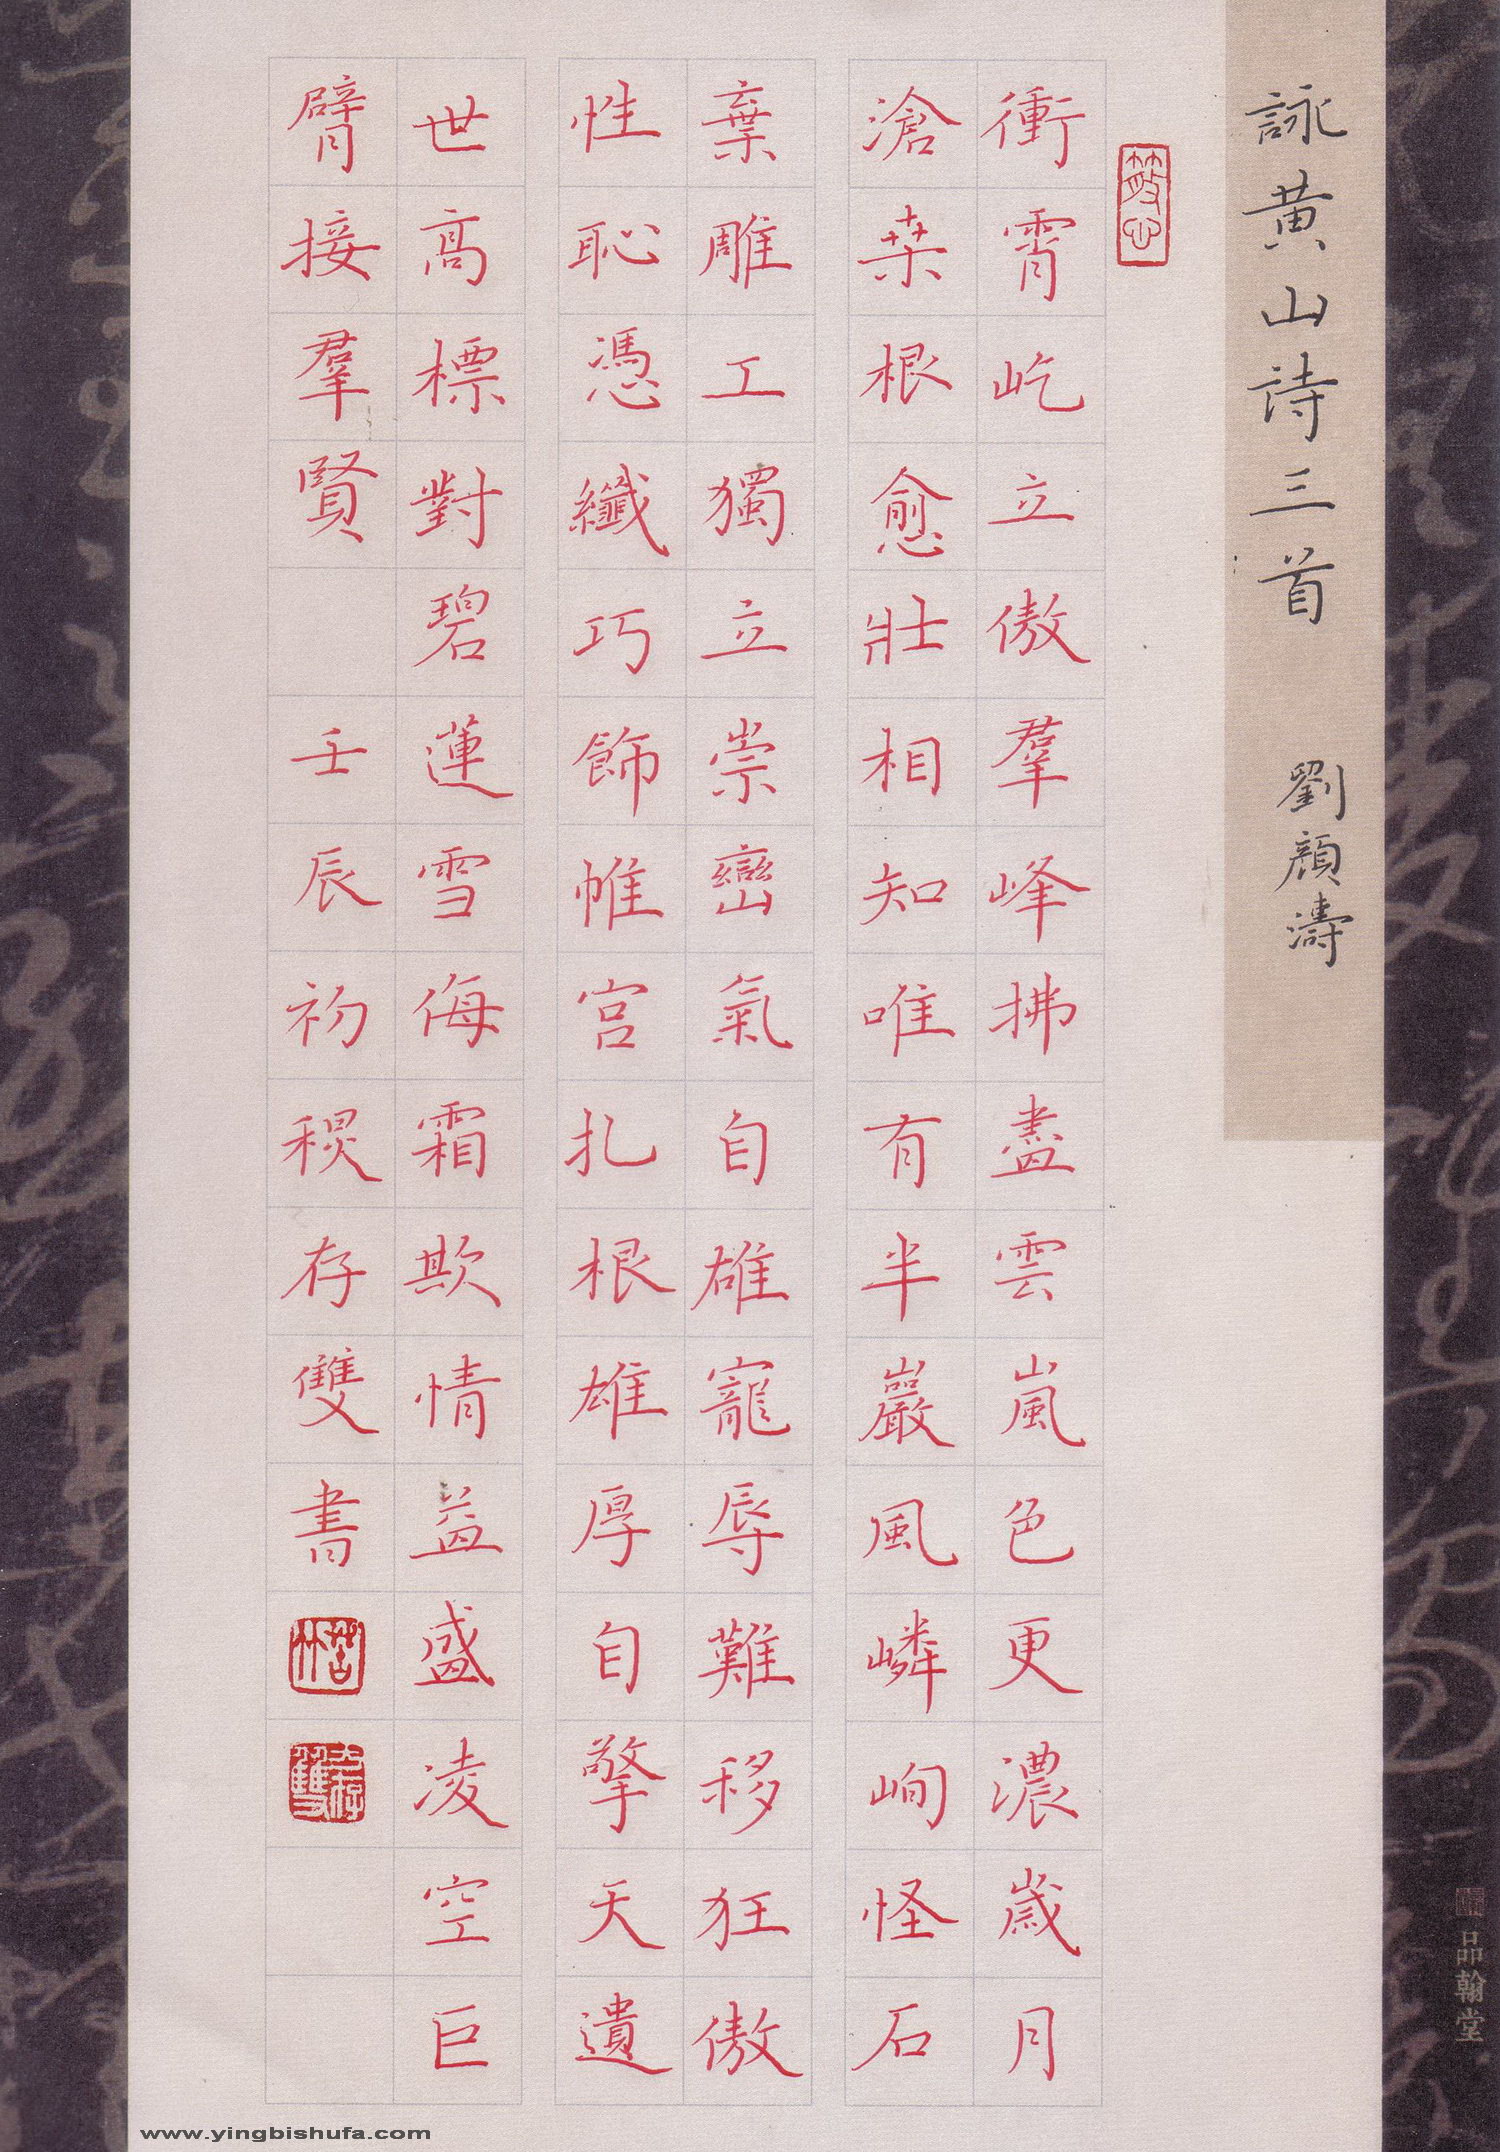 詠黄山詩三首 劉顏濤
衝霄屹立傲羣峰拂盡雲嵐色更濃歲月
滄桒根愈壯相知唯有半巖風嶙峋怪石
棄雕工獨立崇巒氣自雄寵辱難移狂傲
性恥憑纖巧飾帷宮扎根雄厚自擎天遺
世高標對碧蓮雪侮霜欺情益盛凌空巨
臂接羣賢 壬辰初稷存雙書
品翰堂
www.yingbishufa.com